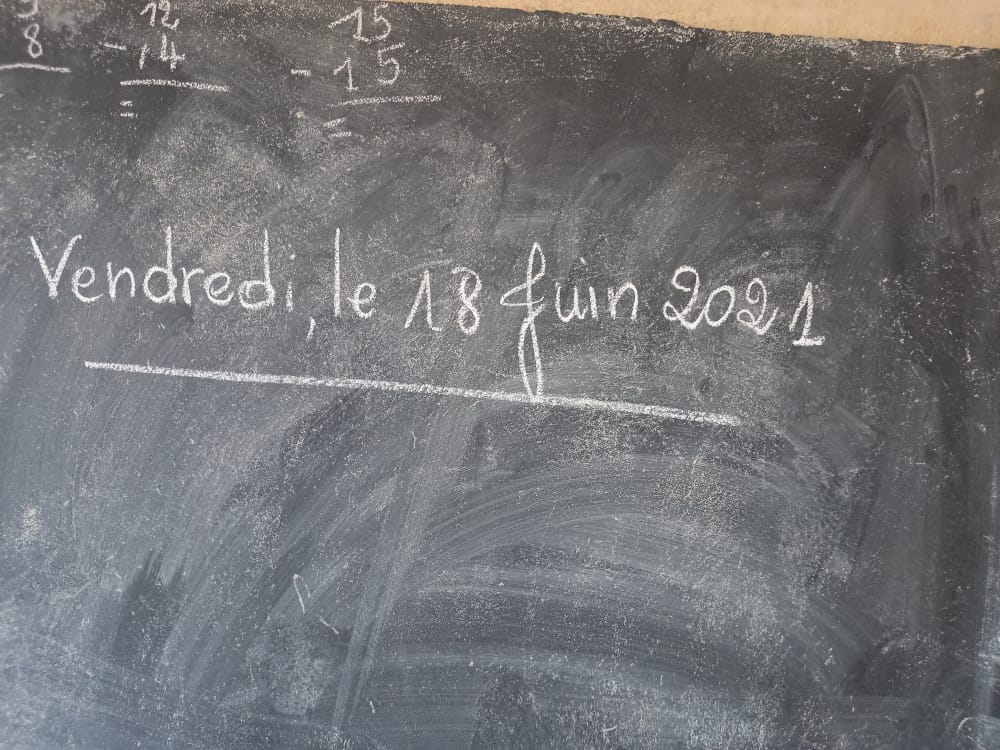 12 15
8 - 14 - 15
= =
Vendredi, le 18 Juin 2021